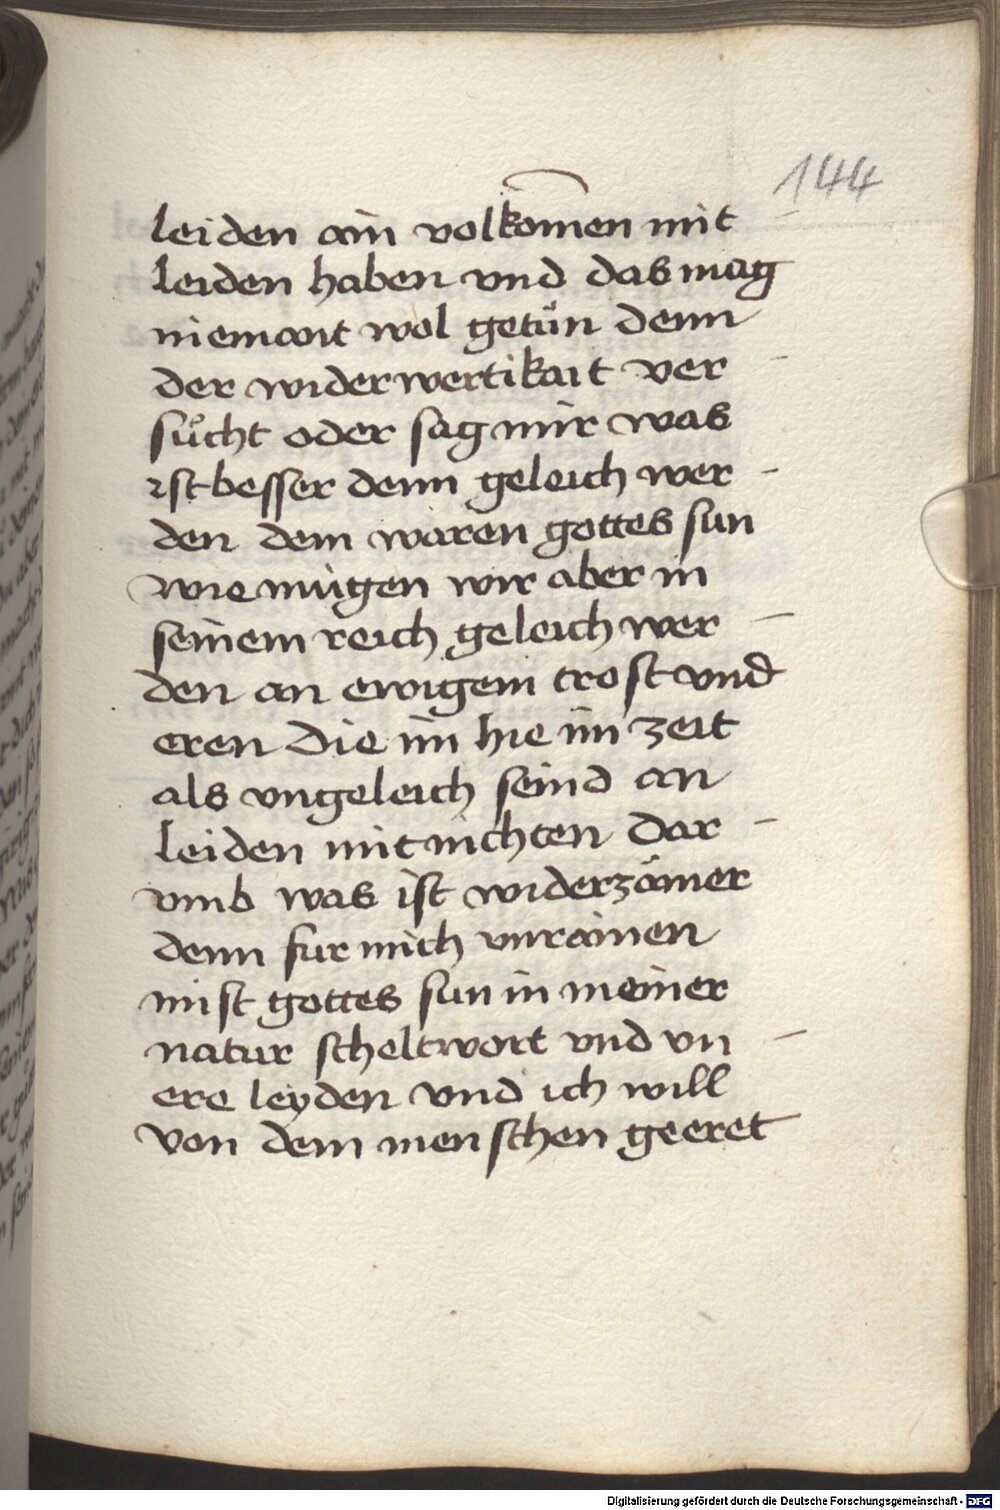 144
leiden ain volkomen mit
leiden haben vnd das mag
niemant wol getůn denn
der widerwertikait ver
sůcht oder sag mir was
ist besser denn geleich wer
den dem waren gottes sun
wie mügen wir aber in
seinem reich geleich wer
den an ewigem trost vnd
eren Die im hie im zeit
als vngeleich seind an
leiden mit nichten Dar
vmb was ist widerzämer
denn fur mich vnrainen
mist gottes sun in meiner
natur scheltwort vnd vn
ere leyden vnd ich will
von dem menschen geeret
Digitalisierung gefördert durch die Deutsche Forschungsgemeinschaft - DFG